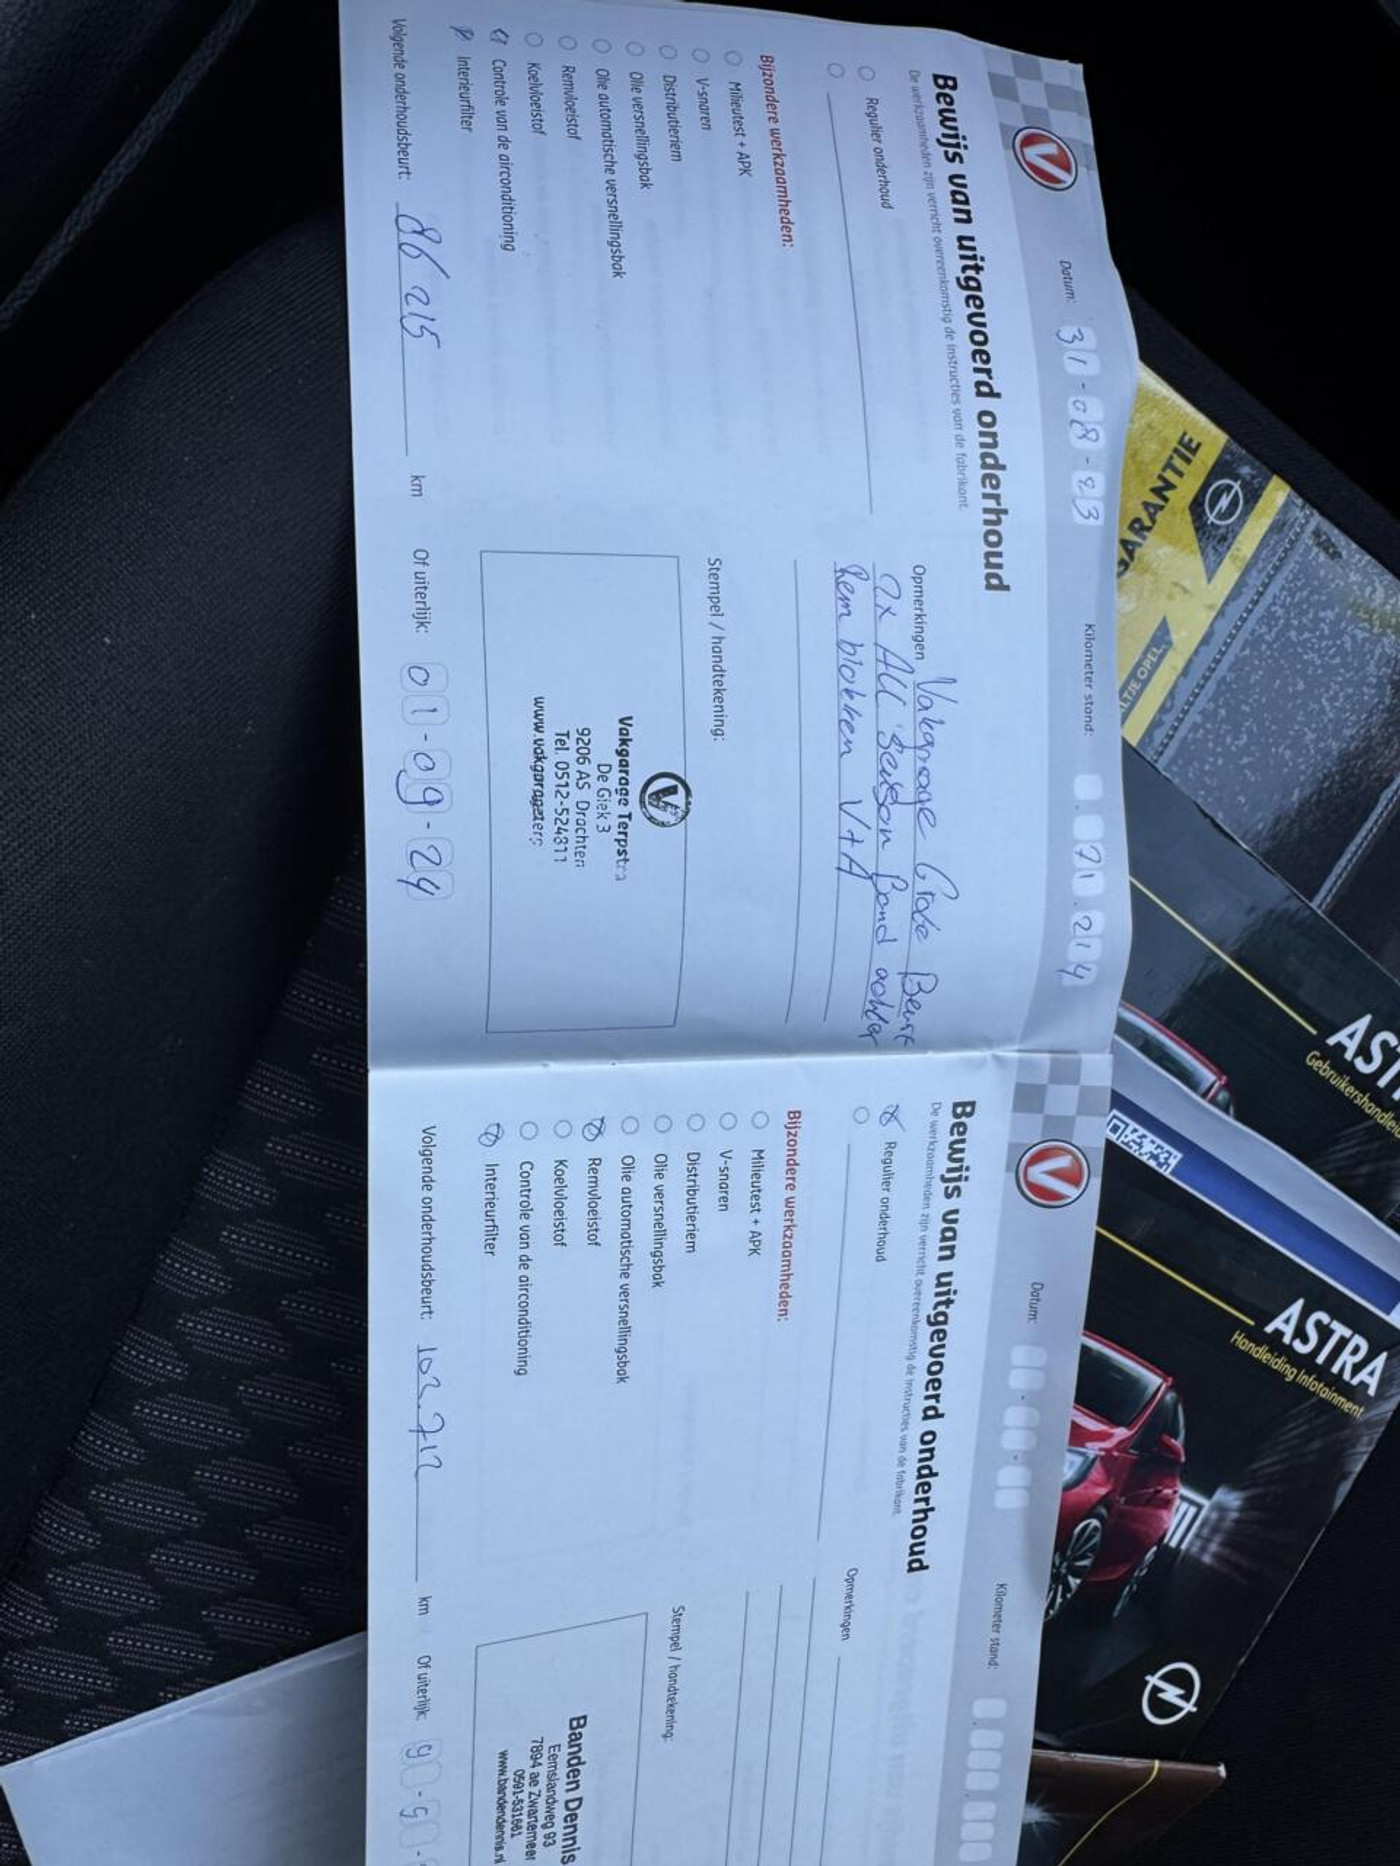 Datum: 31-08-23
Kilometer stand: 71.214
Bewijs van uitgevoerd onderhoud
De werkzaamheden zijn verricht overeenkomstig de instructies van de fabrikant.
Regulier onderhoud
Opmerkingen Vakgarage Grote Beurt
2x All Season Band achter
Rem blokken V+A
Bijzondere werkzaamheden:
Milieutest + APK
V-snaren
Distributieriem
Olie versnellingsbak
Olie automatische versnellingsbak
Remvloeistof
Koelvloeistof
Controle van de airconditioning
Interieurfilter
Stempel / handtekening:
Vakgarage Terpstra
De Giek 3
9206 AS Drachten
Tel. 0512-524811
Volgende onderhoudsbeurt: 86 215 km Of uiterlijk: 01-09-24
Datum:
Kilometer stand:
Bewijs van uitgevoerd onderhoud
De werkzaamheden zijn verricht overeenkomstig de instructies van de fabrikant.
Regulier onderhoud
Opmerkingen
Bijzondere werkzaamheden:
Milieutest + APK
V-snaren
Distributieriem
Olie versnellingsbak
Olie automatische versnellingsbak
Remvloeistof
Koelvloeistof
Controle van de airconditioning
Interieurfilter
Stempel / handtekening:
Banden Dennis
Eemslandweg 93
7894 ae Zwartemeer
0591-531661
www.bandendennis.nl
Volgende onderhoudsbeurt: 102.712 km Of uiterlijk:
GARANTIE
OPEL
Gebruikershandlei
ASTRA
Handleiding Infotainment